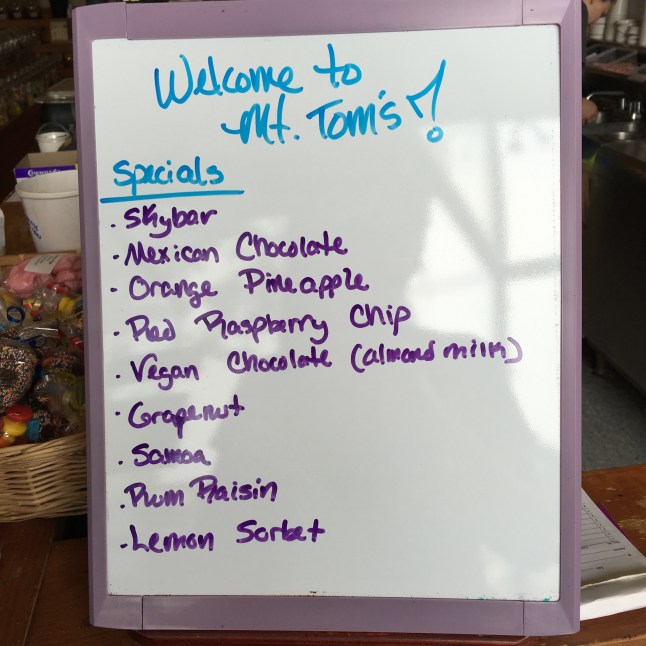 Welcome to
Mt. Tom's!
Specials
· Skybar
· Mexican Chocolate
· Orange Pineapple
· Red Raspberry Chip
· Vegan Chocolate (almond milk)
· Grapenut
· Samoa
· Rum Raisin
· Lemon Sorbet